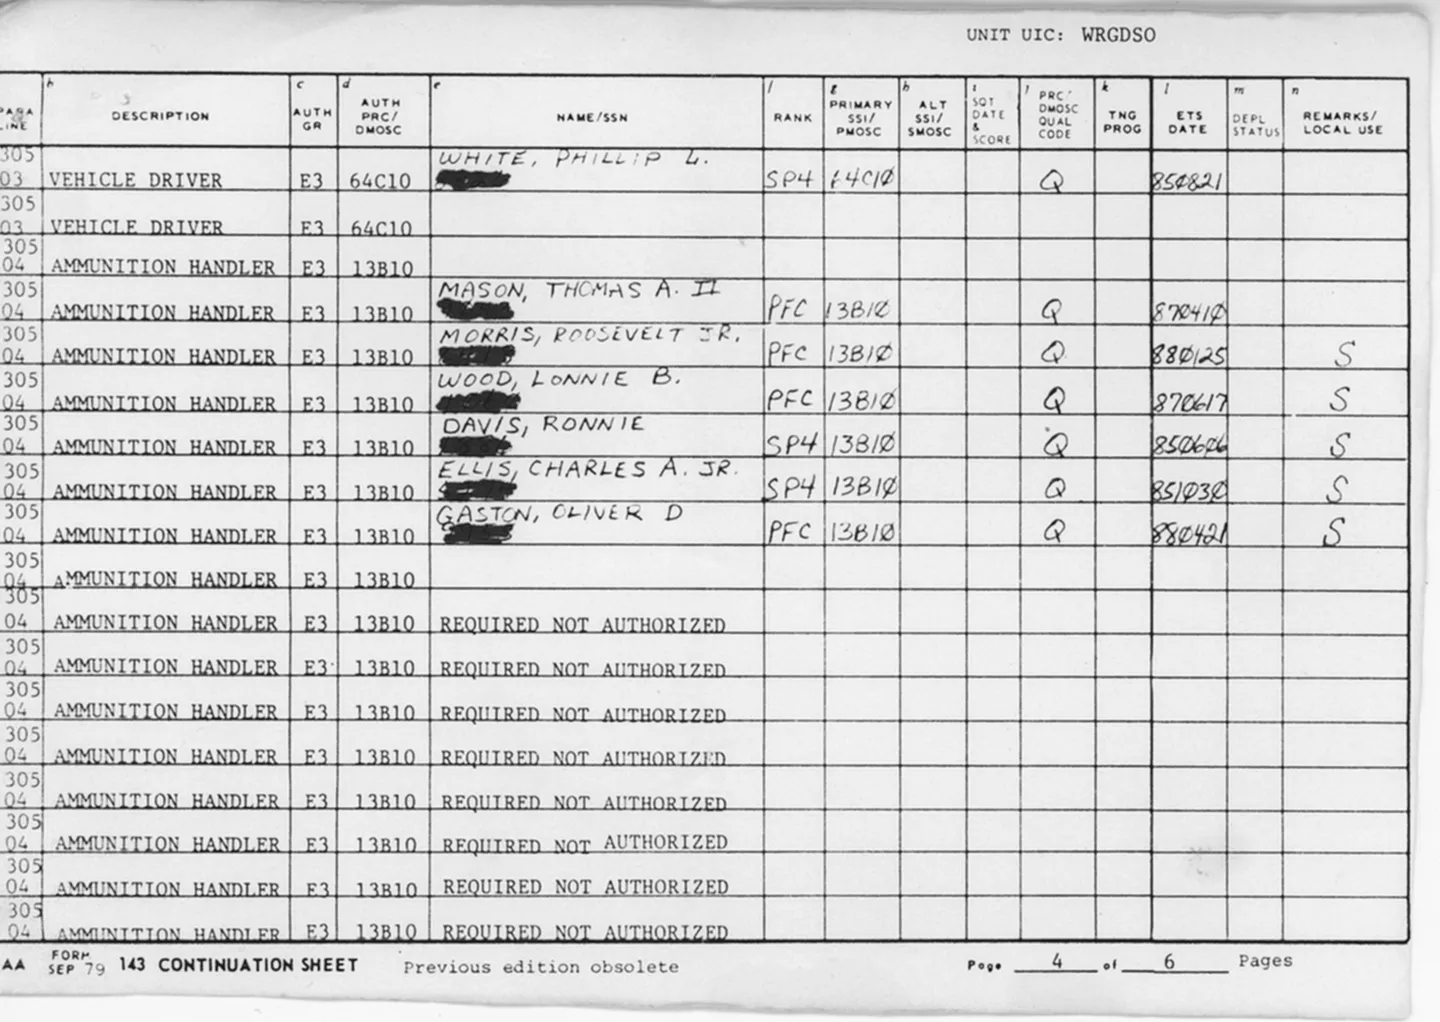 UNIT UIC: WRGDSO
PARA LINE
b DESCRIPTION
c AUTH GR
d AUTH PRC/ DMOSC
e NAME/SSN
f RANK
g PRIMARY SSI/ PMOSC
h ALT SSI/ SMOSC
i SQT DATE & SCORE
j PRC/ DMOSC QUAL CODE
k TNG PROG
l ETS DATE
m DEPL STATUS
n REMARKS/ LOCAL USE
305 WHITE, PHILLIP L.
03 VEHICLE DRIVER E3 64C10 SP4 64C1Ø Q 85Ø821
305
03 VEHICLE DRIVER E3 64C10
305
04 AMMUNITION HANDLER E3 13B10
305 MASON, THOMAS A. II
04 AMMUNITION HANDLER E3 13B10 PFC 13B1Ø Q 87Ø41Ø
305 MORRIS, ROOSEVELT JR.
04 AMMUNITION HANDLER E3 13B10 PFC 13B1Ø Q 88Ø125 S
305 WOOD, LONNIE B.
04 AMMUNITION HANDLER E3 13B10 PFC 13B1Ø Q 87Ø617 S
305 DAVIS, RONNIE
04 AMMUNITION HANDLER E3 13B10 SP4 13B1Ø Q 85Ø6Ø6 S
305 ELLIS, CHARLES A. JR.
04 AMMUNITION HANDLER E3 13B10 SP4 13B1Ø Q 851Ø3Ø S
305 GASTON, OLIVER D
04 AMMUNITION HANDLER E3 13B10 PFC 13B1Ø Q 88Ø421 S
305
04 AMMUNITION HANDLER E3 13B10
305
04 AMMUNITION HANDLER E3 13B10 REQUIRED NOT AUTHORIZED
305
04 AMMUNITION HANDLER E3 13B10 REQUIRED NOT AUTHORIZED
305
04 AMMUNITION HANDLER E3 13B10 REQUIRED NOT AUTHORIZED
305
04 AMMUNITION HANDLER E3 13B10 REQUIRED NOT AUTHORIZED
305
04 AMMUNITION HANDLER E3 13B10 REQUIRED NOT AUTHORIZED
305
04 AMMUNITION HANDLER E3 13B10 REQUIRED NOT AUTHORIZED
305
04 AMMUNITION HANDLER E3 13B10 REQUIRED NOT AUTHORIZED
305
04 AMMUNITION HANDLER E3 13B10 REQUIRED NOT AUTHORIZED
AA FORM SEP 79 143 CONTINUATION SHEET Previous edition obsolete Page 4 of 6 Pages